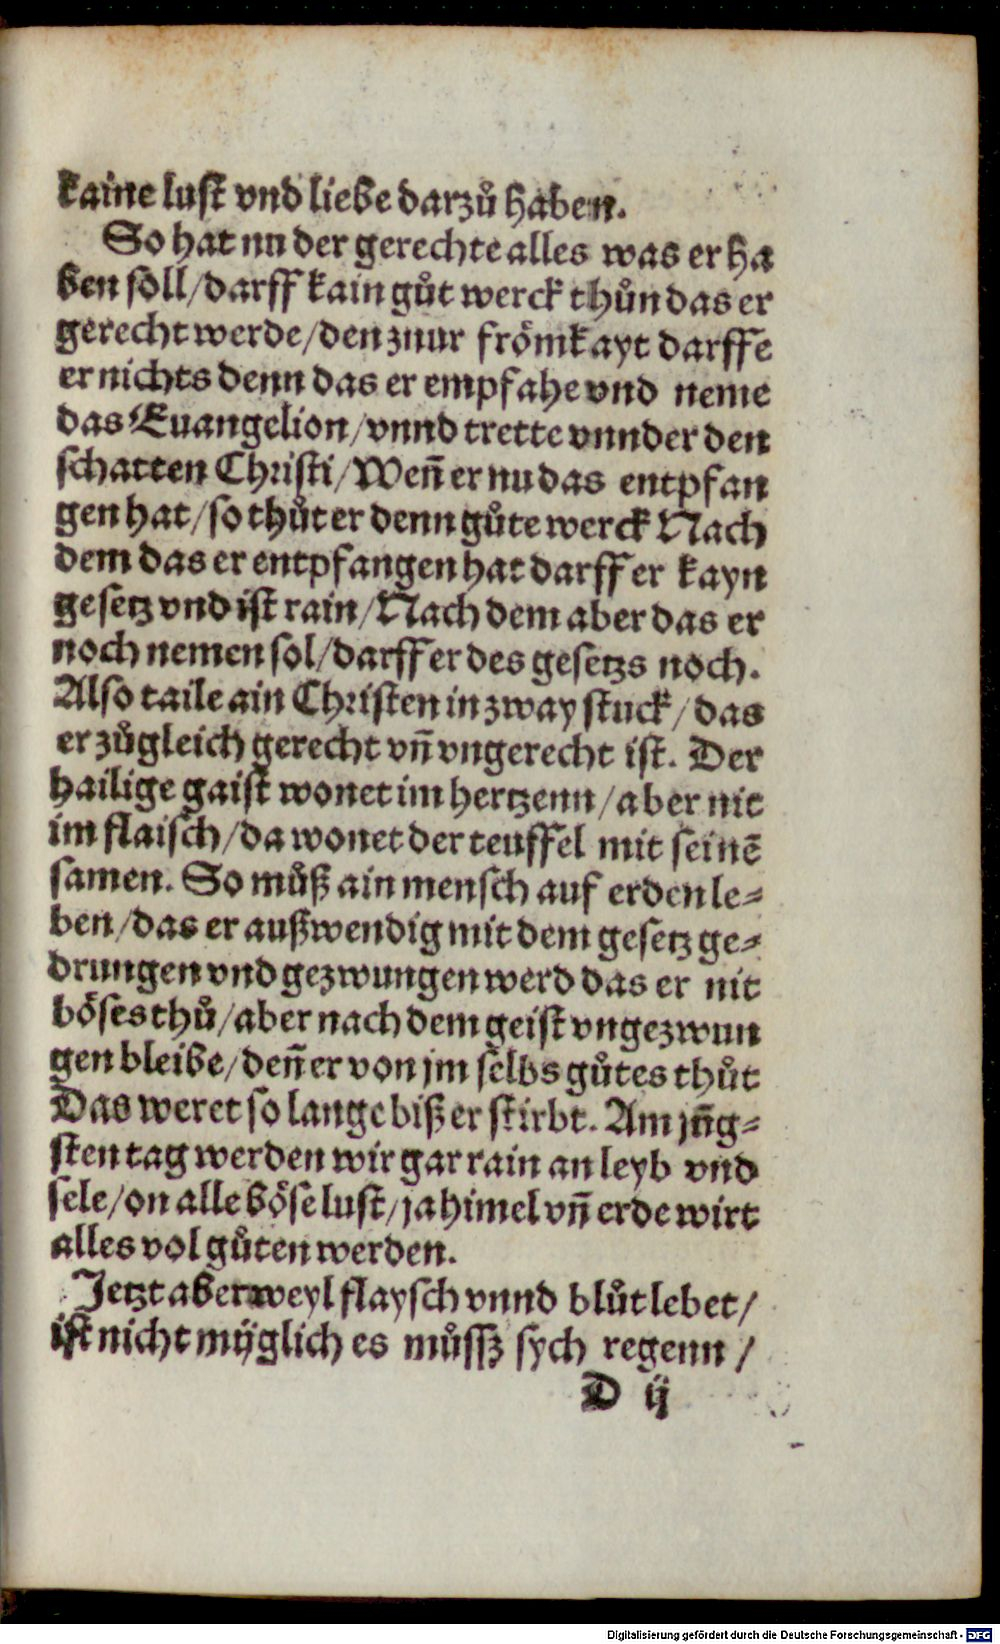 kaine lust vnd liebe darzů haben.
So hat nu der gerechte alles was er ha
ben soll/darff kain gůt werck thůn das er
gerecht werde/den znur frömkayt darffe
er nichts denn das er empfahe vnd neme
das Euangelion/vnnd trette vnnder den
schatten Christi/Weñ er nu das entpfan
gen hat/so thůt er denn gůte werck Nach
dem das er entpfangen hat darff er kayn
gesetz vnd ist rain/Nach dem aber das er
noch nemen sol/darff er des gesetzs noch.
Also taile ain Christen in zway stuck/das
er zůgleich gerecht vñ vngerecht ist. Der
hailige gaist wonet im hertzenn/aber nit
im flaisch/da wonet der teuffel mit seinē
samen. So můß ain mensch auf erden le⸗
ben/das er außwendig mit dem gesetz ge⸗
drungen vnd gezwungen werd das er nit
böses thů/aber nach dem geist vngezwun
gen bleibe/deñ er von jm selbs gůtes thůt
Das weret so lange biß er stirbt. Am jñg⸗
sten tag werden wir gar rain an leyb vnd
sele/on alle böse lust/ja himel vñ erde wirt
alles vol gůten werden.
Jetzt aber weyl flaysch vnnd blůt lebet/
ist nicht müglich es můssz sych regenn/
D ij
Digitalisierung gefördert durch die Deutsche Forschungsgemeinschaft - DFG